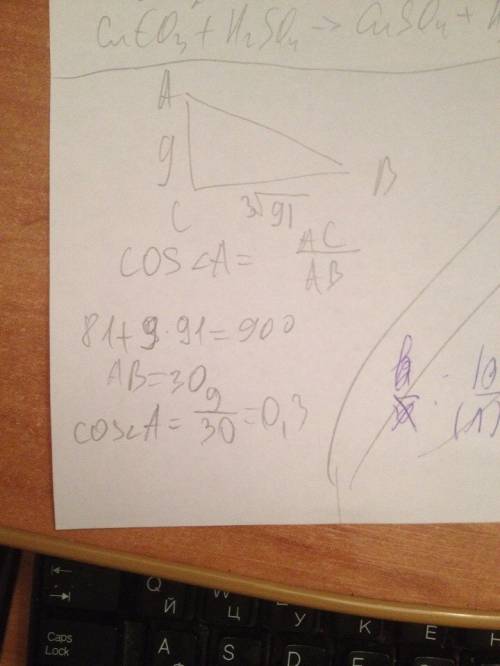 CuCO₃ + H₂SO₄ → CuSO₄ +
A
9
B
C
3√91
cos∠A = AC/AB
81 + 9·91 = 900
AB = 30
cos∠A = 9/30 = 0,3
10
Q Й
W Ц
У
К
Е
Н
Caps Lock
A
S
D
F